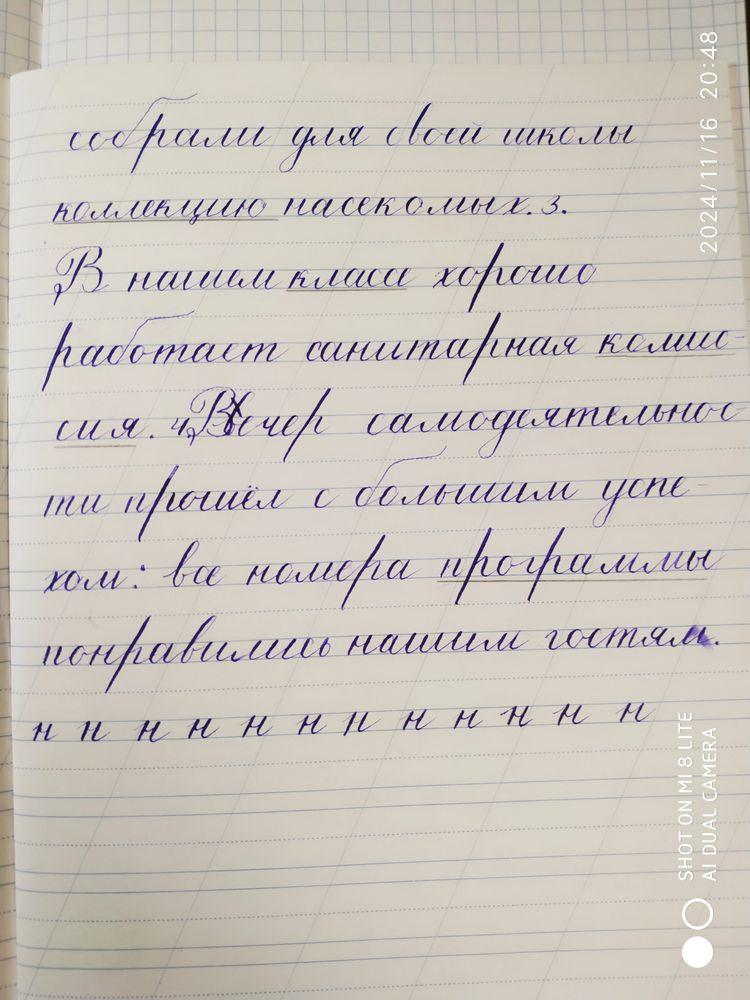 собрали для своей школы
коллекцию насекомых. 3.
В нашем классе хорошо
работает санитарная комис-
сия. 4. Вечер самодеятельнос-
ти прошёл с большим успе-
хом: все номера программы
понравились нашим гостям.
н н н н н н н н н н н н
2024/11/16 20:48
SHOT ON MI 8 LITE
AI DUAL CAMERA